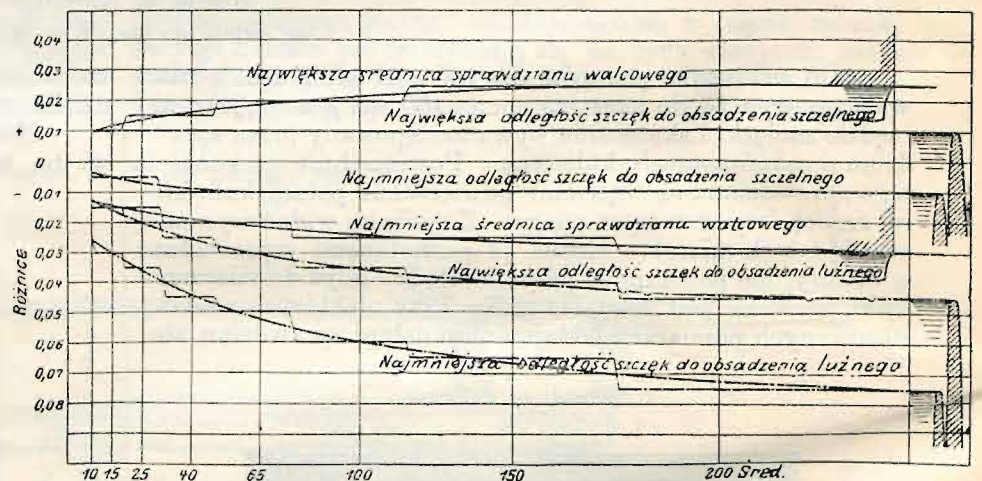 0,04
0,03
0,02
+ 0,01
0
- 0,01
0,02
0,03
0,04
0,05
0,06
0,07
0,08
Różnice
Największa średnica sprawdzianu walcowego
Największa odległość szczęk do obsadzenia szczelnego
Najmniejsza odległość szczęk do obsadzenia szczelnego
Najmniejsza średnica sprawdzianu walcowego
Największa odległość szczęk do obsadzenia luźnego
Najmniejsza odległość szczęk do obsadzenia luźnego
10 15 25 40 65 100 150 200 Śred.